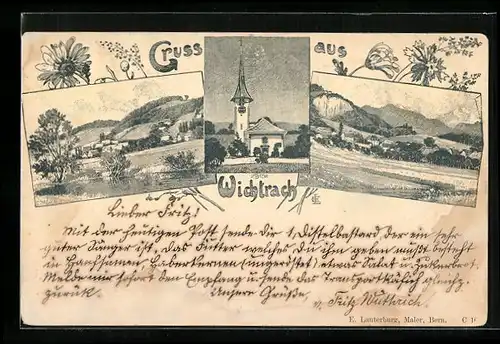 Gruss aus
Wichtrach
Lieber Fritz!
Mit der heutigen Post sende dir 1 Distelbastard der ein sehr
guter Sänger ist, das Futter welches du ihm geben mußt besteht
in Hanfsamen, Haberkernen (ungeröstet) etwas Salat u. Zuckerbrot.
Melde mir sofort den Empfang u. sende das Transportkäfich gleichz.
zurück. Unsere Grüße,
v. Fritz Wüthrich
E. Lauterburg, Maler, Bern. C